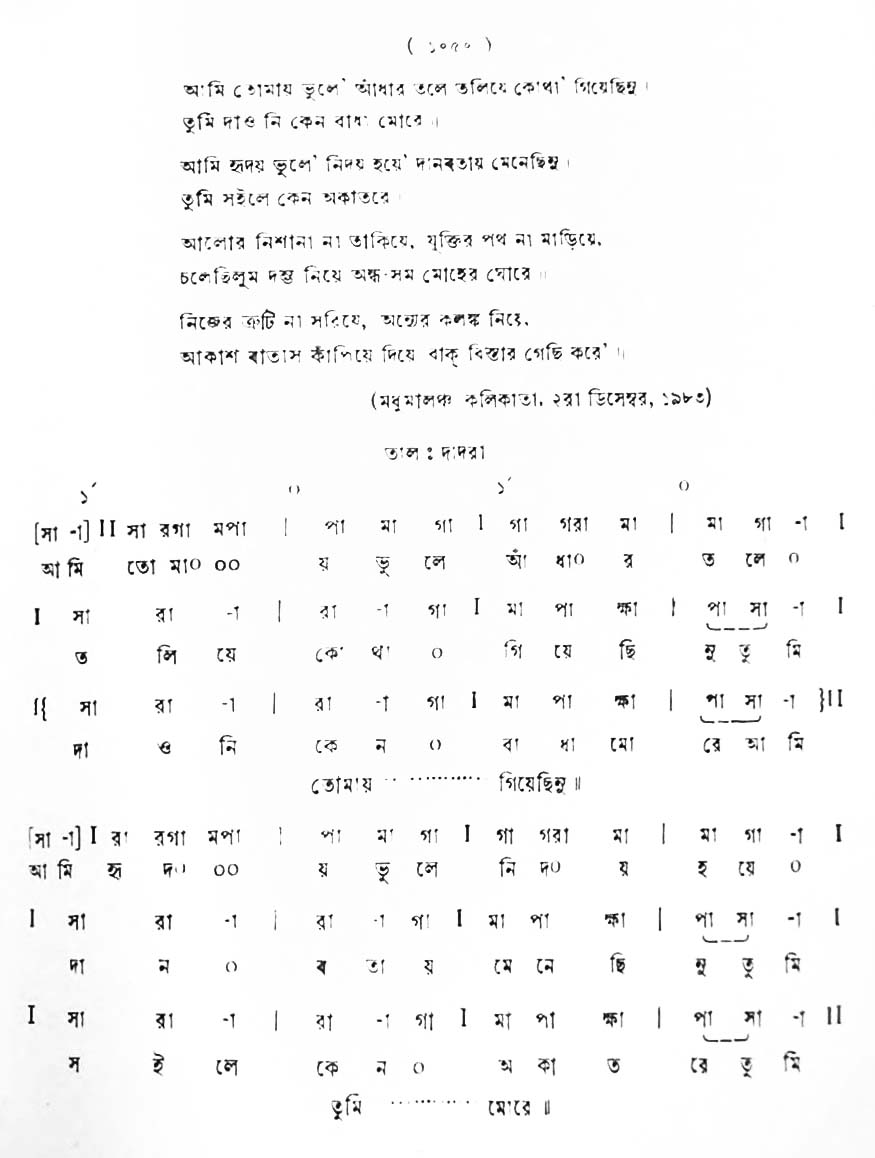 ( ১০৫০ )
আমি তোমায় ভুলে' আঁধার তলে তলিয়ে কোথা' গিয়েছিনু।
তুমি দাও নি কেন বাধা মোরে ॥
আমি হৃদয় ভুলে' নিদয় হয়ে' দানবতায় মেনেছিনু।
তুমি সইলে কেন অকাতরে।
আলোর নিশানা না তাকিয়ে, যুক্তির পথ না মাড়িয়ে,
চলেছিলুম দম্ভ নিয়ে অন্ধ-সম মোহের ঘোরে ॥
নিজের ত্রুটি না সরিয়ে, অন্যের কলঙ্ক নিয়ে,
আকাশ বাতাস কাঁপিয়ে দিয়ে বাক্ বিস্তার গেছি করে' ॥
(মধুমালঞ্চ কলিকাতা, ২রা ডিসেম্বর, ১৯৮৩)
তাল ঃ দাদরা
১´ ০ ১´ ০
[সা -া] II সা রগা মপা | পা মা গা I গা গরা মা | মা গা -া I
আ মি তো মা০ ০০ য় ভু লে আঁ ধা০ র ত লে ০
I সা রা -া | রা -া গা I মা পা ক্ষা | পা সা -া I
ত লি য়ে কো থা ০ গি য়ে ছি নু তু মি
I{ সা রা -া | রা -া গা I মা পা ক্ষা | পা সা -া }II
দা ও নি কে ন ০ বা ধা মো রে আ মি
তোমায় ·············· গিয়েছিনু ॥
[সা -া] I রা রগা মপা | পা মা গা I গা গরা মা | মা গা -া I
আ মি হৃ দ০ ০০ য় ভু লে নি দ০ য় হ য়ে ০
I সা রা -া | রা -া গা I মা পা ক্ষা | পা সা -া I
দা ন ০ ব তা য় মে নে ছি নু তু মি
I সা রা -া | রা -া গা I মা পা ক্ষা | পা সা -া II
স ই লে কে ন ০ অ কা ত রে তু মি
তুমি ·········· মোরে ॥